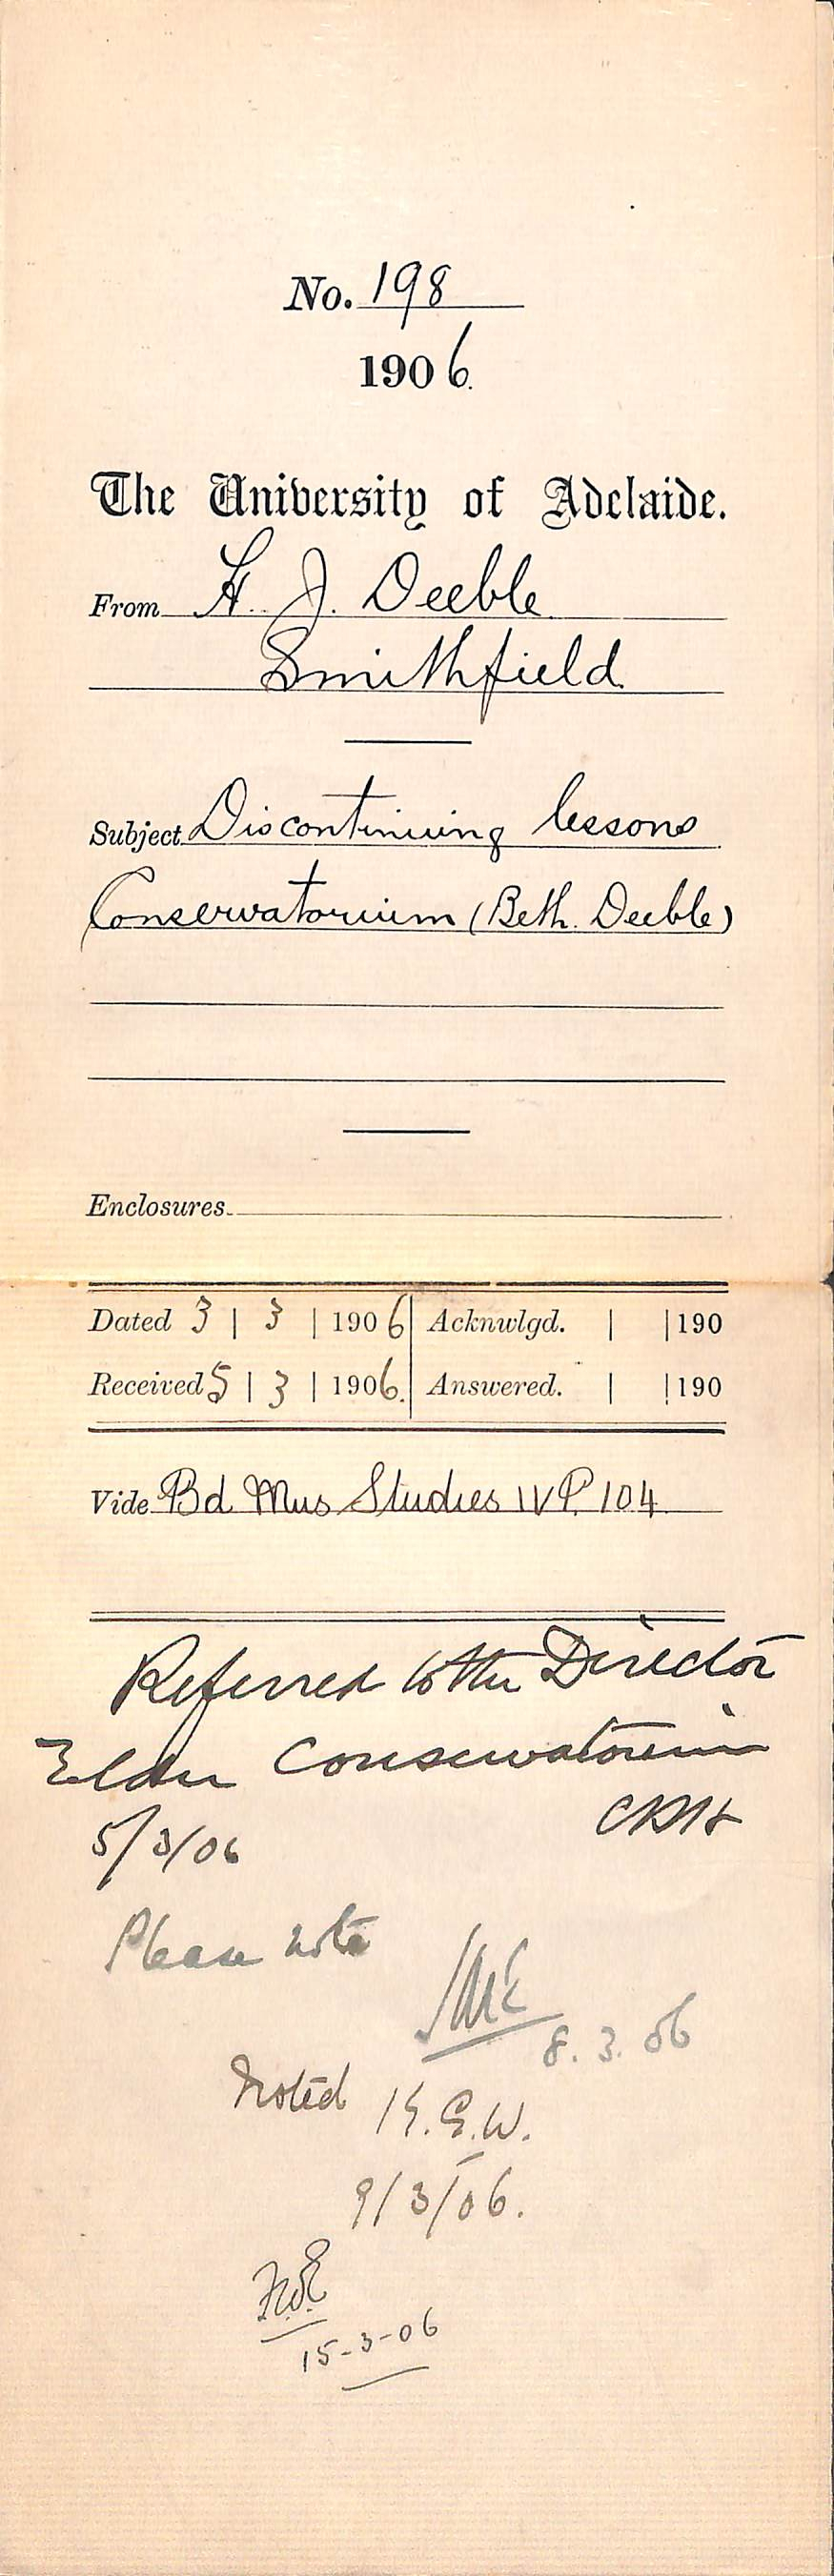 No. 198
1906.
The University of Adelaide.
From H. J. Deeble
Smithfield
Subject Discontinuing lessons
Conservatorium (Beth. Deeble)
Enclosures
Dated 3 | 3 | 1906 Acknwlgd. | | 190
Received 5 | 3 | 1906. Answered. | | 190
Vide Bd Mus Studies IV P 104
Referred to the Director
Elder Conservatorium
5/3/06
Please note
8.3.06
Noted K.G.W.
9/3/06.
15-3-06